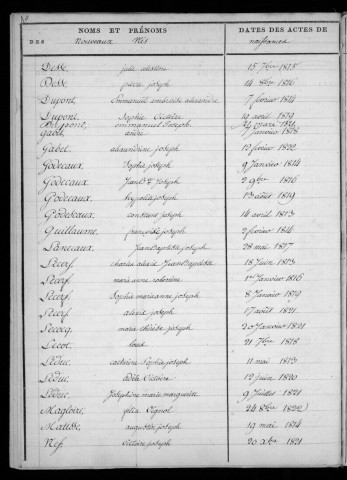 NOMS ET PRÉNOMS
DATES DES ACTES DE
DES
Nouveaux Nés
naissances
Desse, julie 15 7bre 1815
Desse, pierre joseph 14 8bre 1816
Dupont, Emmanuel ambroise alexandre 7 fevrier 1814
Dupont, Sophie Victoire 10 avril 1819
Emmanuel joseph 1821
Gabet, andré janvier 1818
Gabet, alexandrine joseph 12 fevrier 1822
Godecaux, Sophie joseph 9 janvier 1814
Godecaux, Jean Bte joseph 2 9bre 1816
Godecaux, hypolite joseph 13 août 1819
Godebeaux, constant joseph 14 avril 1813
Guillaume, françoise joseph 2 fevrier 1816
Lancaux, Jean Baptiste joseph 28 mai 1817
Lecerf, charles alexis Jean Baptiste 18 juin 1813
Lecerf, marie anne 1er Janvier 1816
Lecerf, Sophie marianne joseph 8 Janvier 1819
Lecerf, alexis joseph 17 août 1821
Lecocq, marie thérèse joseph 20 Janvier 1821
Lecot, louis 21 7bre 1818
Leduc, catherine Sophie joseph 11 mai 1813
Leduc, adèle Victoire 12 juin 1820
Leduc, Joséphine marie marguerite 9 juillet 1821
Magloire, 24 8bre 1822
Matisse, augustin joseph 19 mai 1814
Nef, Victoire joseph 20 xbre 1821